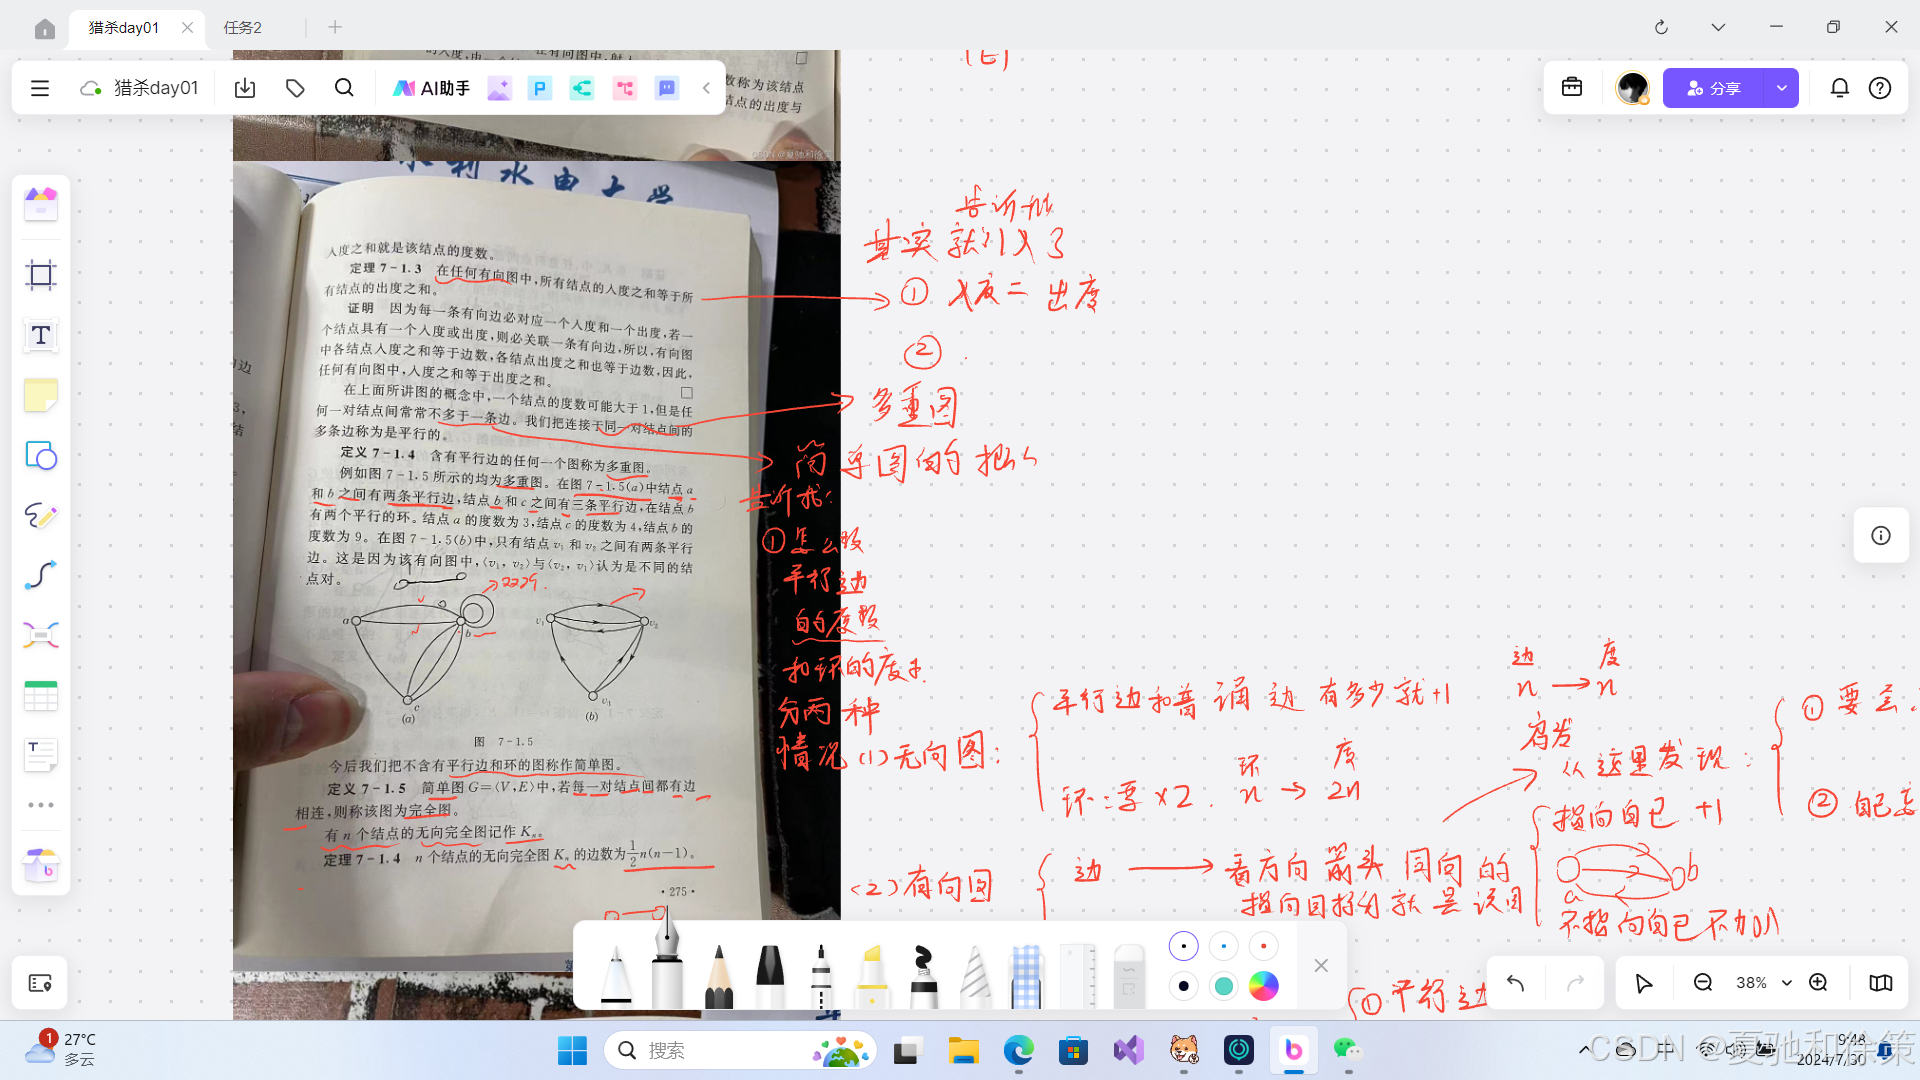 猎杀day01
任务2
猎杀day01
AI助手
分享
数称为该结点
结点的出度与
CSDN @夏驰和徐策
入度之和就是该结点的度数。
定理 7-1.3 在任何有向图中,所有结点的入度之和等于所
有结点的出度之和。
证明 因为每一条有向边必对应一个入度和一个出度,若一
个结点具有一个入度或出度,则必关联一条有向边,所以,有向图
中各结点入度之和等于边数,各结点出度之和也等于边数,因此,
任何有向图中,入度之和等于出度之和。
在上面所讲图的概念中,一个结点的度数可能大于1,但是任
何一对结点间常常不多于一条边。我们把连接于同一对结点间的
多条边称为是平行的。
定义 7-1.4 含有平行边的任何一个图称为多重图。
例如图 7-1.5 所示的均为多重图。在图 7-1.5(a)中结点 a
和 b 之间有两条平行边,结点 b 和 c 之间有三条平行边,在结点 b
有两个平行的环。结点 a 的度数为 3,结点 c 的度数为 4,结点 b 的
度数为 9。在图 7-1.5(b)中,只有结点 v₁ 和 v₂ 之间有两条平行
边。这是因为该有向图中,⟨v₁, v₂⟩与⟨v₂, v₁⟩认为是不同的结
点对。
a
b
c
(a)
v₁
v₂
v₃
(b)
图 7-1.5
今后我们把不含有平行边和环的图称作简单图。
定义 7-1.5 简单图 G=⟨V,E⟩中,若每一对结点间都有边
相连,则称该图为完全图。
有 n 个结点的无向完全图记作 Kₙ。
定理 7-1.4 n 个结点的无向完全图 Kₙ 的边数为 1/2 n(n-1)。
·275·
告诉我
其实就引入了
① 入度=出度
②
多重图
简单图的概念
告诉我:
①怎么数
平行边
的度数
和环的度
分两种
情况 (1)无向图:
平行边和普通边有多少就+1
环:要×2.
环 度
n → 2n
边 度
n → n
启发
从这里发现:
① 要
② 自己
(2)有向图
边 → 看方向 箭头 同向的
指向自己 +1
a
b
不指向自己不加
① 平行边
38%
27°C
多云
1
搜索
9:48
2024/7/30
CSDN @夏驰和徐策